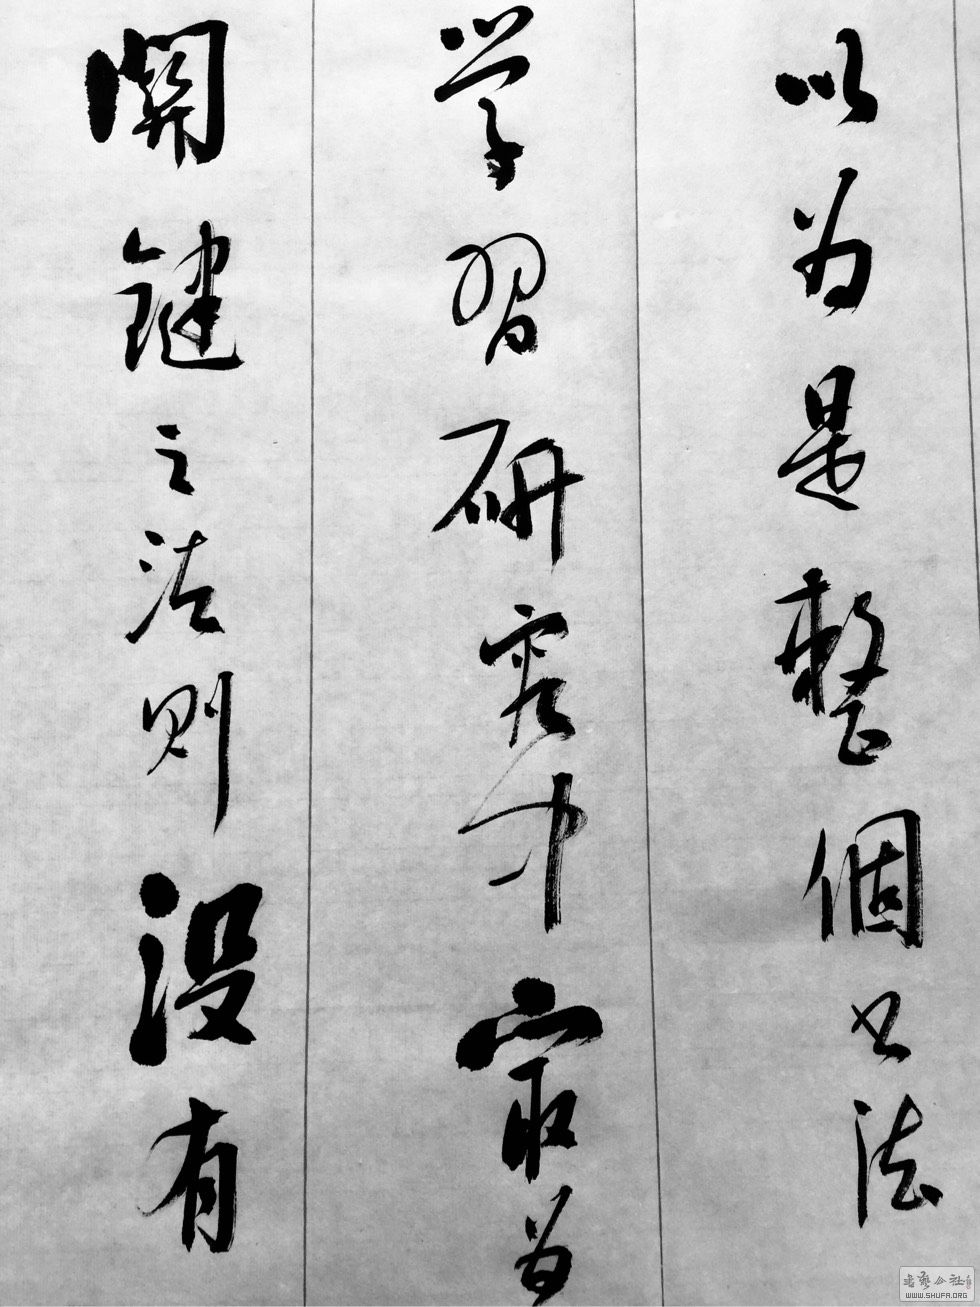 以为是整個书法
学習研究中最为
関鍵之法则没有
书艺公社
WWW.SHUFA.ORG